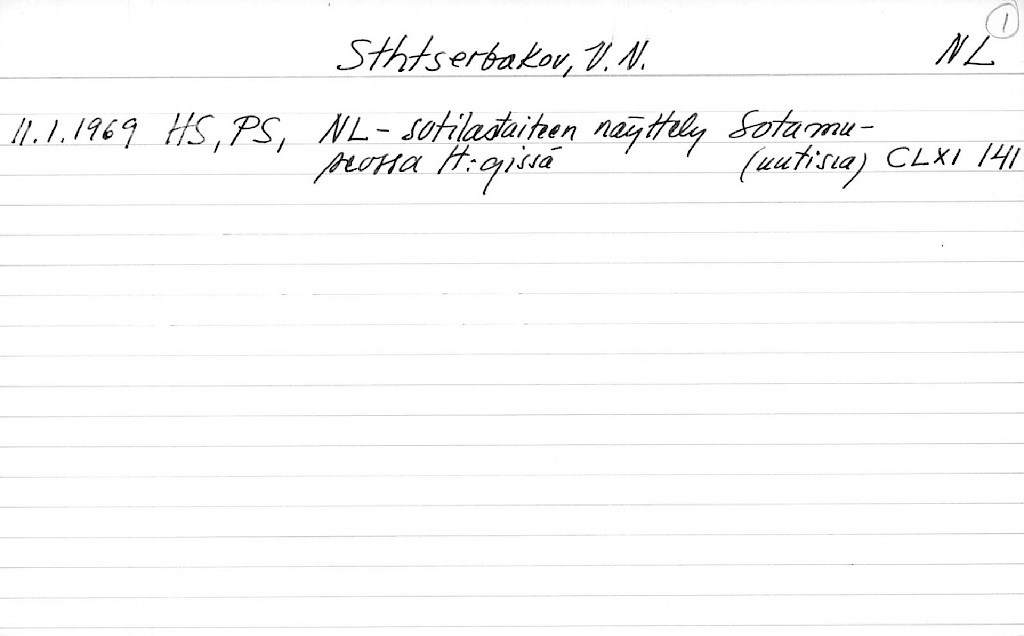 1
Sthtserbakov, V. N. NL
11.1.1969 HS, PS, NL- sotilastaiteen näyttely Sotamu-
seossa H:gissä (uutisia) CLXI 141